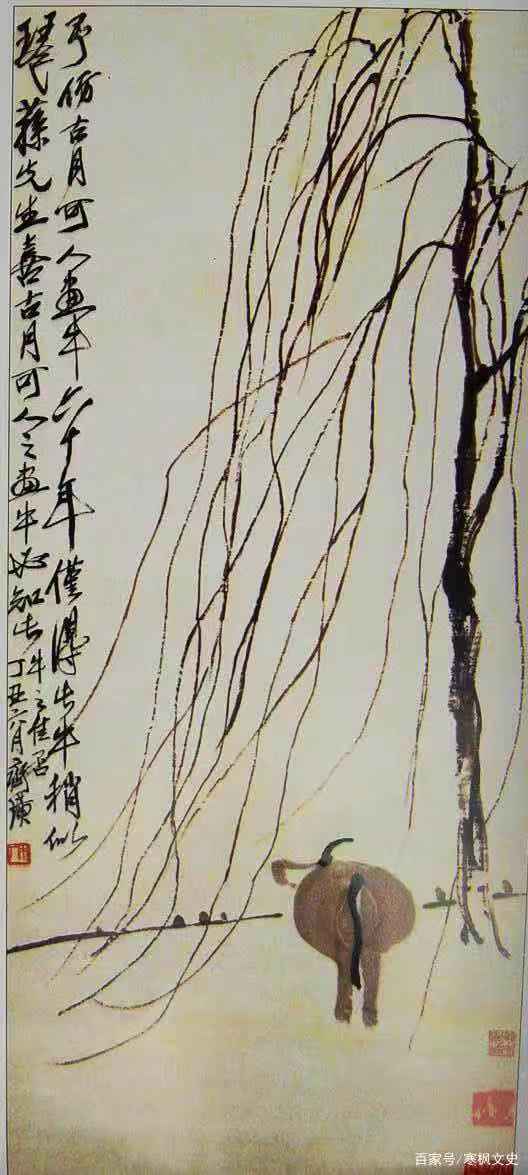 予仿古月可人畫牛六十年僅得此牛稍似
琴蓀先生喜古月可人之畫牛必知此
牛之佳否
丁丑六月齊璜
百家号/寒枫文史